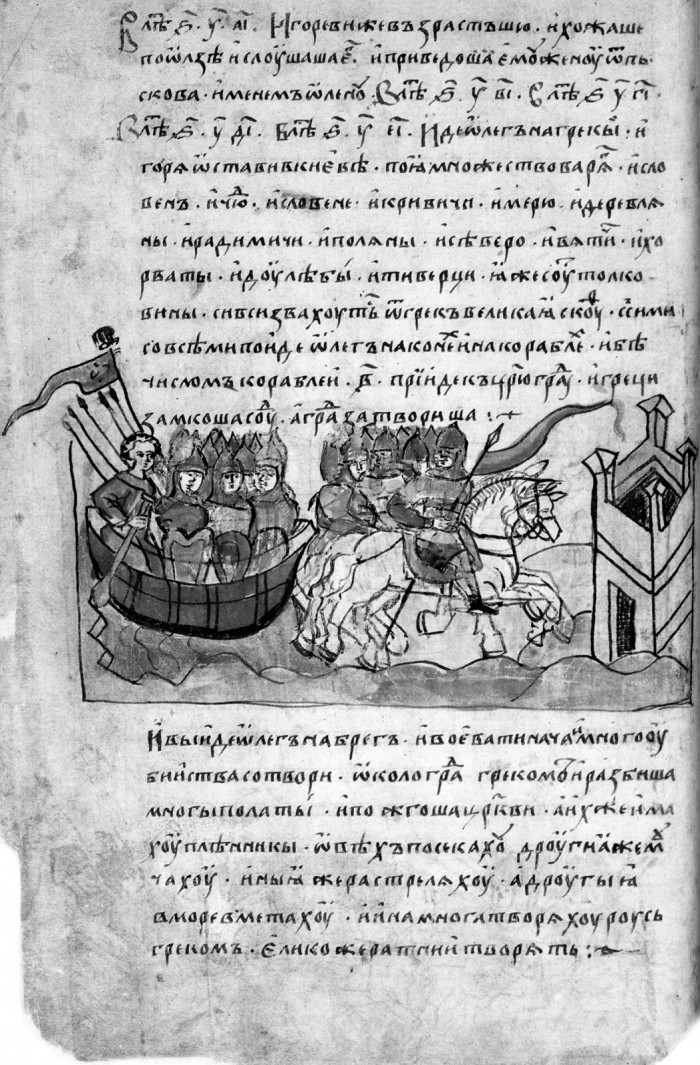 В лѣт҃ ѕ҃ . у҃ . аı҃ . Игореви же възрастъшю . и хожаше
по ѡлзѣ и слоушаша е҃г . и приведоша емоу женоу ѿ пь
скова . именемъ ѡленоу В лѣт҃ ѕ҃ у҃ вı҃ . В лѣт҃ ѕ҃ у҃ гı҃ .
В лѣт҃ ѕ҃ . у҃ дı҃ . В лѣт҃ ѕ҃ . у҃ еı҃ . Иде ѡлегъ на грекы . и
горя ѡставив киевѣ . поıа множество варяг . и сло
венъ . и чюд . и словене . и кривичи . и мерю . и деревля
ны . и радимичи . и поляны . и сѣверо . и вятичи . и хо
рваты . и доулѣбы . и тиверци . ıаже соуть толко
вины . си вси звахоуть ѿ грекъ великаıа скоуф . с сими
со всѣми поиде ѡлегъ на конех и на кораблех . и бѣ
числомъ кораблеи . в҃ . прıиде къ цр҃ю градоу . и греци
замкоша соуд . а град затвориша :
И выиде ѡлегъ на брегъ . и воевати нача . и много оу
биıства сотвори . ѡколо града грекомъ . и разбиша
многы полаты . и пожгоша црк҃ви . а ихже има
хоу плѣнникы . ѡвѣхъ посекахоу дроугиıа же м
чахоу . иныıа же растреляхоу . а дроугыıа
в море вметахоу . и ина многа творяхоу роусь
грекомъ . елико же ратнии творять :